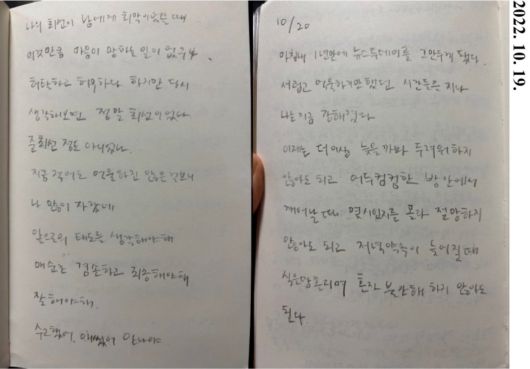 나의 최선이 남에게 최악이었을 때
이것만큼 마음이 망하는 일이 없구나
허탈하고 허무하다 하지만 다시
생각해보면 정말 최선이었다
준최선 정도 다였다.
지금 적어도 억울하진 않을
나
앞으로의 태도를 생각해야해
매순간 겸손하고 최종해야해
잘해야해.
수고했어, 애썼어
10/20
마침내 1년만에 뉴스투데이를 그만두게 됐다
서럽고 억울하기만 했던 시간들을 지나
나는 지금 강해졌다
이제는 더이상 늦을까봐 두려워하지
않아도 되고 어두컴컴한 방 안에서
깨어날 때 몇시인지를 몰라 절망하지
않아도 되고 저녁약속이 늦어질 때
식은땀 흘리며 혼자 불안해 하지 않아도
된다
2022. 10. 19.